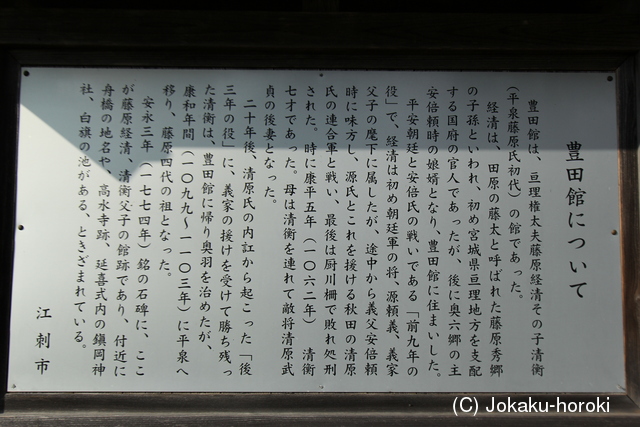 豊田館について
豊田館は、亘理権太夫藤原経清その子清衡
（平泉藤原氏初代）の館であった。
経清は、田原の藤太と呼ばれた藤原秀郷
の子孫といわれ、初め宮城県亘理地方を支配
する国府の官人であったが、後に奥六郷の主
安倍頼時の娘婿となり、豊田館に住まいした。
平安朝廷と安倍氏の戦いである「前九年の
役」で、経清は初め朝廷軍の将、源頼義、義家
父子の麾下に属したが、途中から義父安倍頼
時に味方し、源氏とこれを援ける秋田の清原
氏の連合軍と戦い、最後は厨川柵で敗れ処刑
された。時に康平五年（一〇六二年）　清衡
七才であった。母は清衡を連れて敵将清原武
貞の後妻となった。
二十年後、清原氏の内訌から起こった「後
三年の役」に、義家の援けを受けて勝ち残っ
た清衡は、豊田館に帰り奥羽を治めたが、
康和年間（一〇九九～一一〇三年）に平泉へ
移り、藤原四代の祖となった。
安永三年（一七七四年）銘の石碑に、ここ
が藤原経清、清衡父子の館跡であり、付近に
舟橋の地名や、高水寺跡、延喜式内の鎭岡神
社、白旗の池がある、ときざまれている。
江刺市
(C) Jokaku-horoki